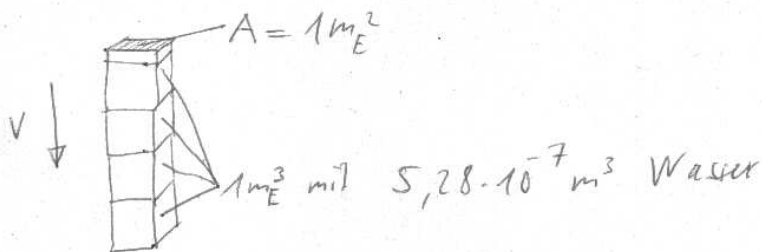 A = 1m_E^2
V
1m_E^3 mit 5,28·10^-7 m^3 Wasser